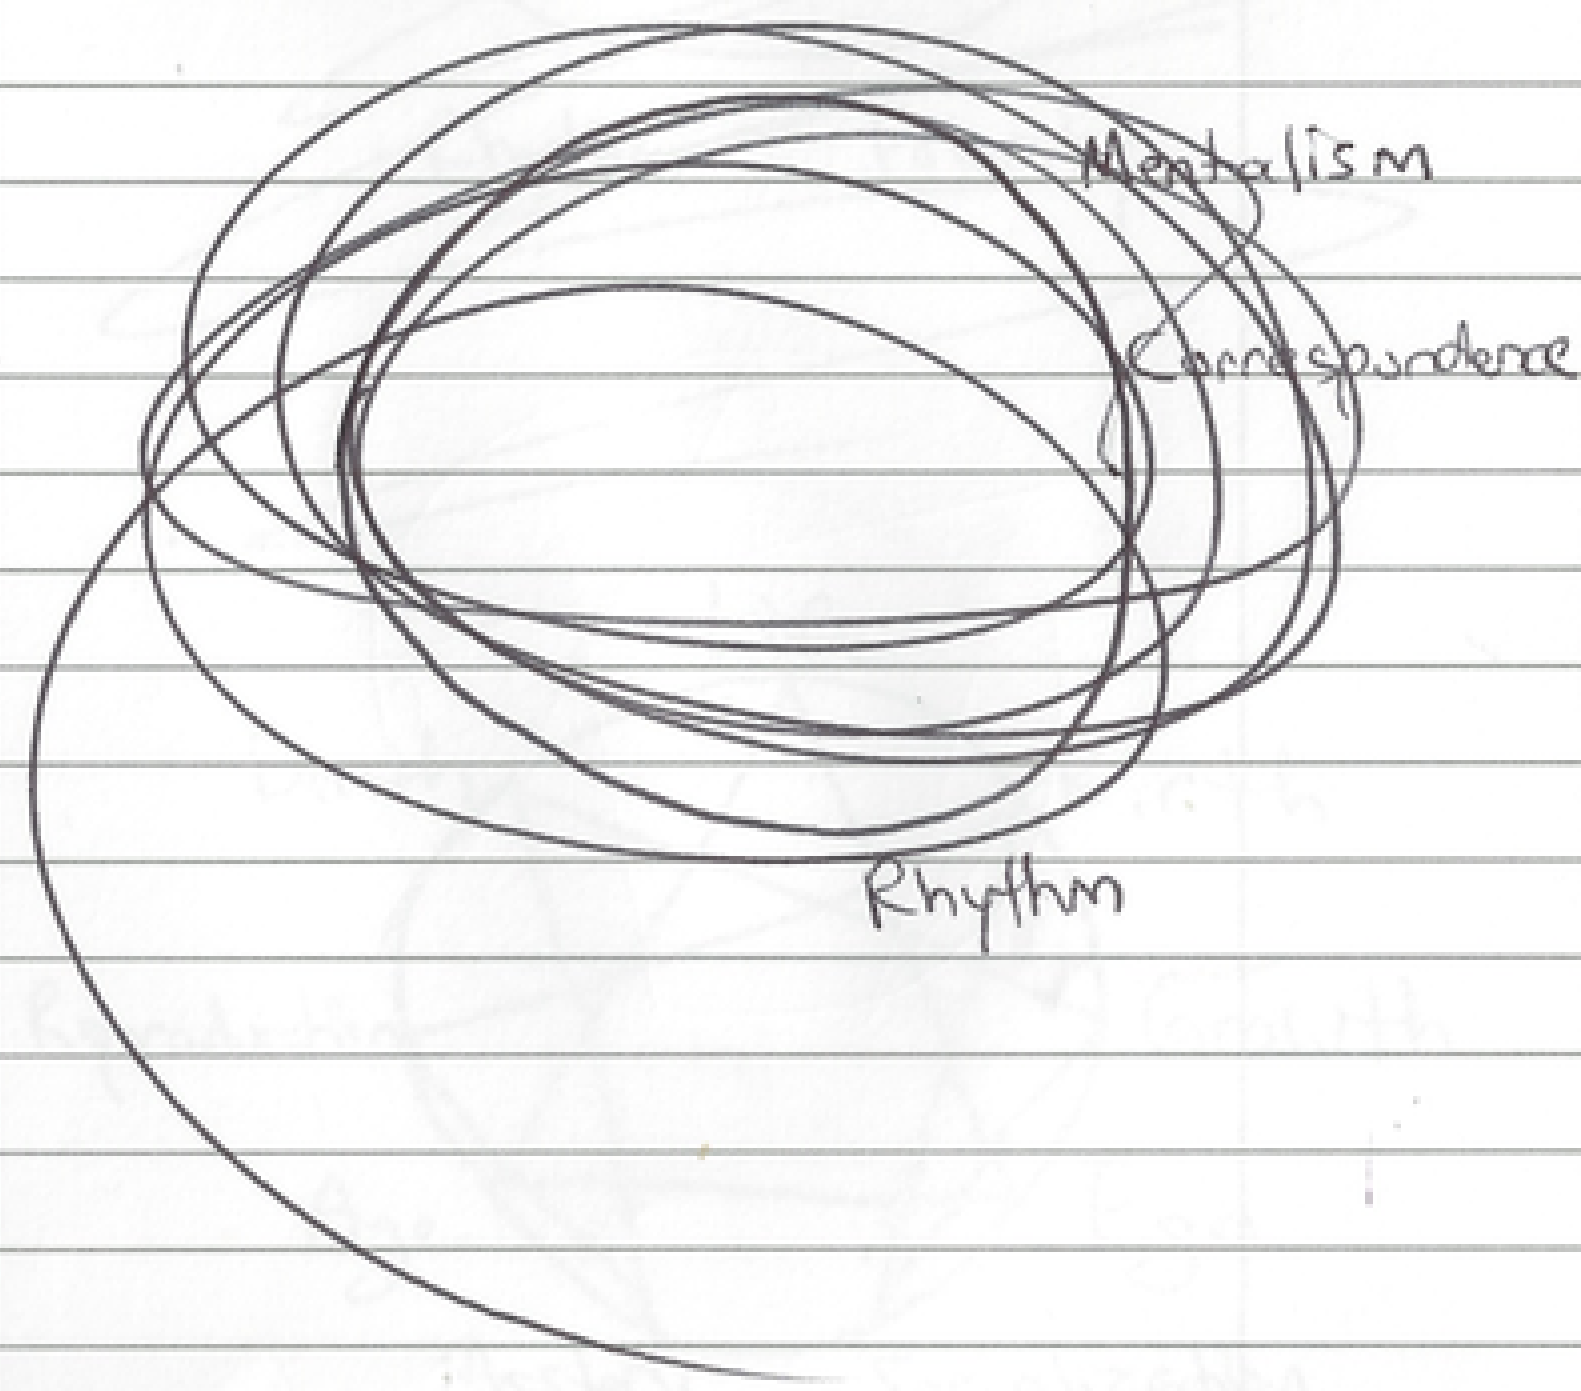 Mentalism
Correspondence
Rhythm